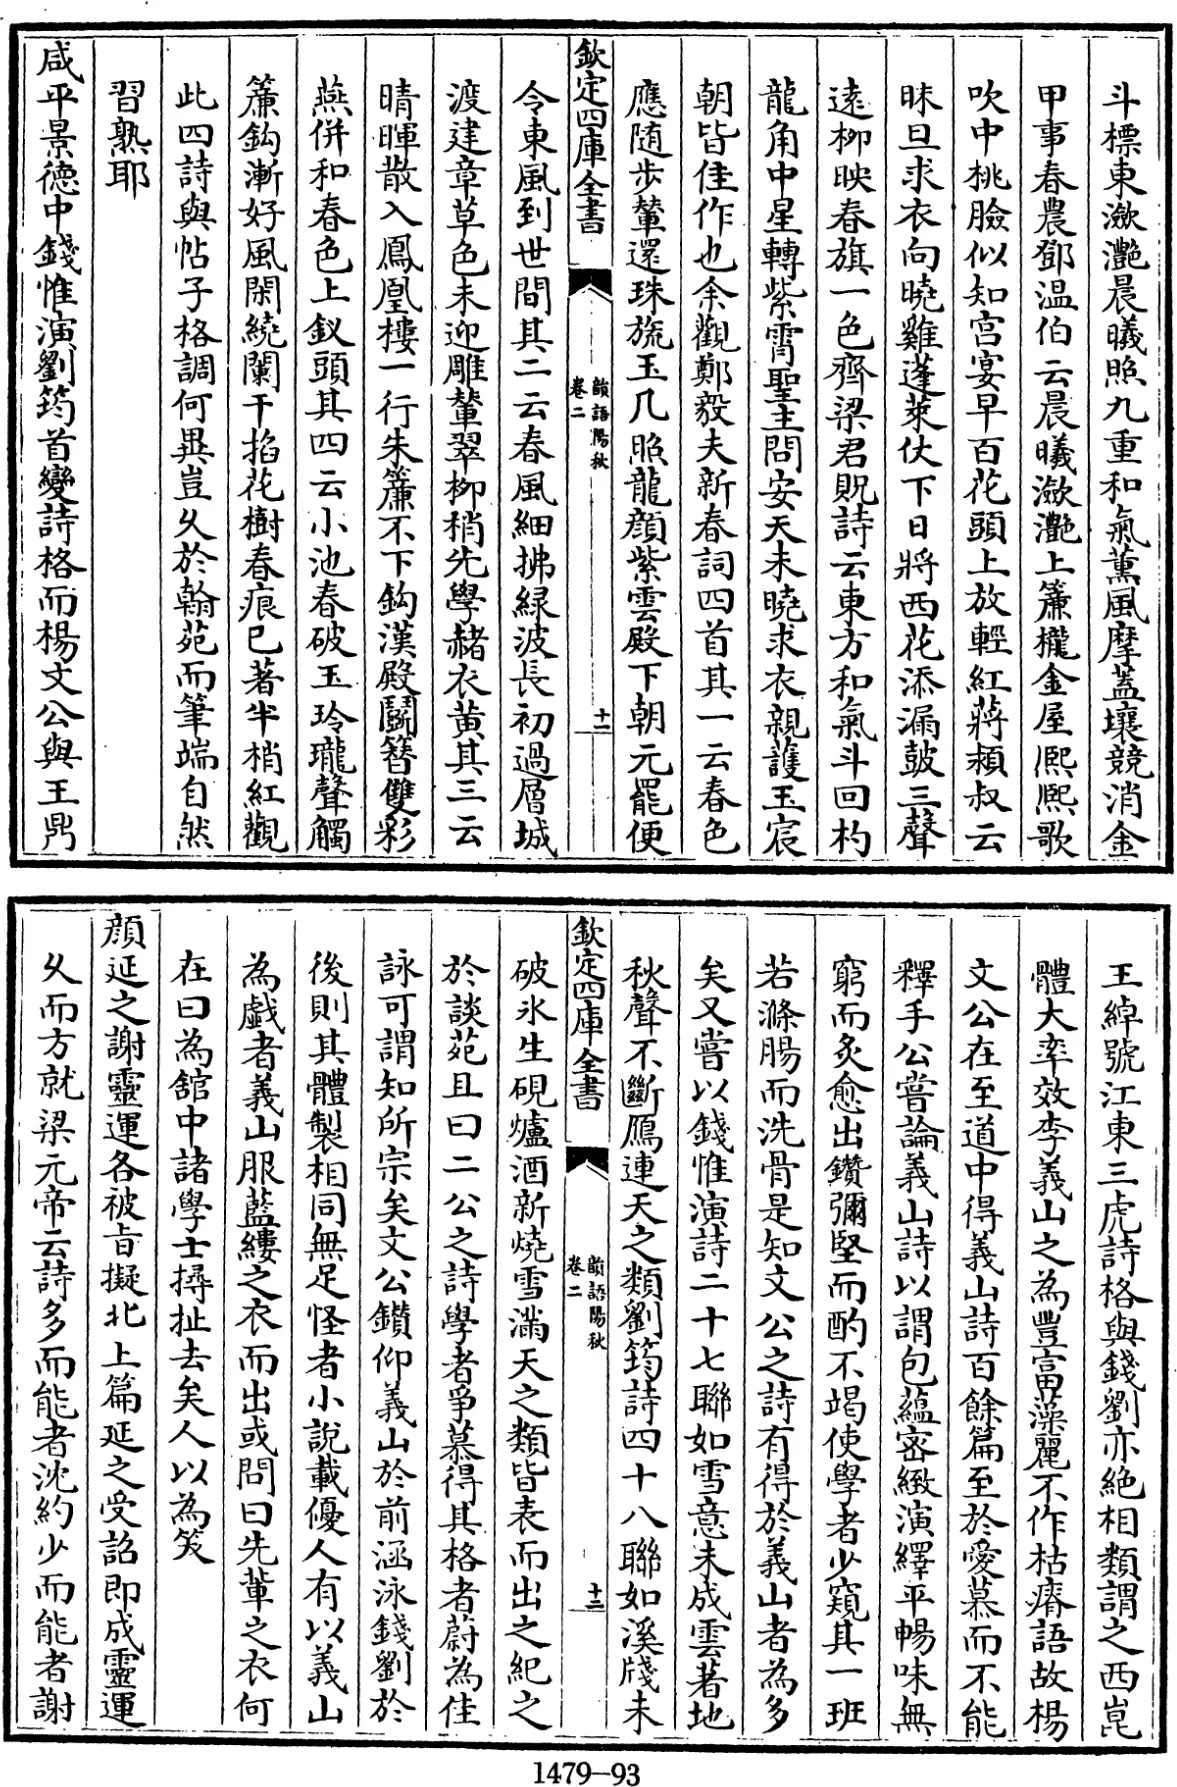 斗標東瀲灔晨曦照九重和氣薰風摩蓋壤競消金
甲事春農鄧温伯云晨曦瀲灔上簾櫳金屋熈熈歌
吹中桃臉似知宫宴早百花頭上放輕紅蔣頴叔云
昧旦求衣向曉雞蓬萊仗下日將西花添漏鼓三聲
逺栁映春旗一色齊梁君貺詩云東方和氣斗回杓
龍角中星轉紫霄聖主問安天未曉求衣親護玉宸
朝皆佳作也余觀鄭毅夫新春詞四首其一云春色
應随步輦還珠旒玉几照龍顔紫雲殿下朝元罷便
欽定四庫全書
韻語陽秋
卷二
十一
令東風到世間其二云春風細拂緑波長初過層城
渡建章草色未迎雕輦翠栁稍先學赭衣黄其三云
晴暉散入鳳凰樓一行朱簾不下鈎漢殿鬭簪雙彩
燕併和春色上釵頭其四云小池春破玉玲瓏聲觸
簾鈎漸好風閑繞闌干掐花樹春痕已著半梢紅觀
此四詩與帖子格調何異豈乆於翰苑而筆端自然
習熟耶
咸平景德中錢惟演劉筠首變詩格而楊文公與王鼎
王綽號江東三虎詩格與錢劉亦絶相類謂之西崑
體大率效李義山之為豐富藻麗不作枯瘠語故楊
文公在至道中得義山詩百餘篇至於愛慕而不能
釋手公嘗論義山詩以謂包藴密緻演繹平暢味無
窮而炙愈出鑽彌堅而酌不竭使學者少窺其一班
若滌腸而洗骨是知文公之詩有得於義山者為多
矣又嘗以錢惟演詩二十七聯如雪意未成雲著地
秋聲不斷鴈連天之類劉筠詩四十八聯如溪牋未
欽定四庫全書
韻語陽秋
卷二
十二
破氷生硯爐酒新燒雪滿天之類皆表而出之紀之
於談苑且曰二公之詩學者爭慕得其格者蔚為佳
詠可謂知所宗矣文公鑚仰義山於前涵泳錢劉於
後則其體製相同無足怪者小説載優人有以義山
為戯者義山服藍縷之衣而出或問曰先輩之衣何
在曰為舘中諸學士撏扯去矣人以為笑
顔延之謝靈運各被旨擬北上篇延之受詔即成靈運
乆而方就梁元帝云詩多而能者沈約少而能者謝
1479—93